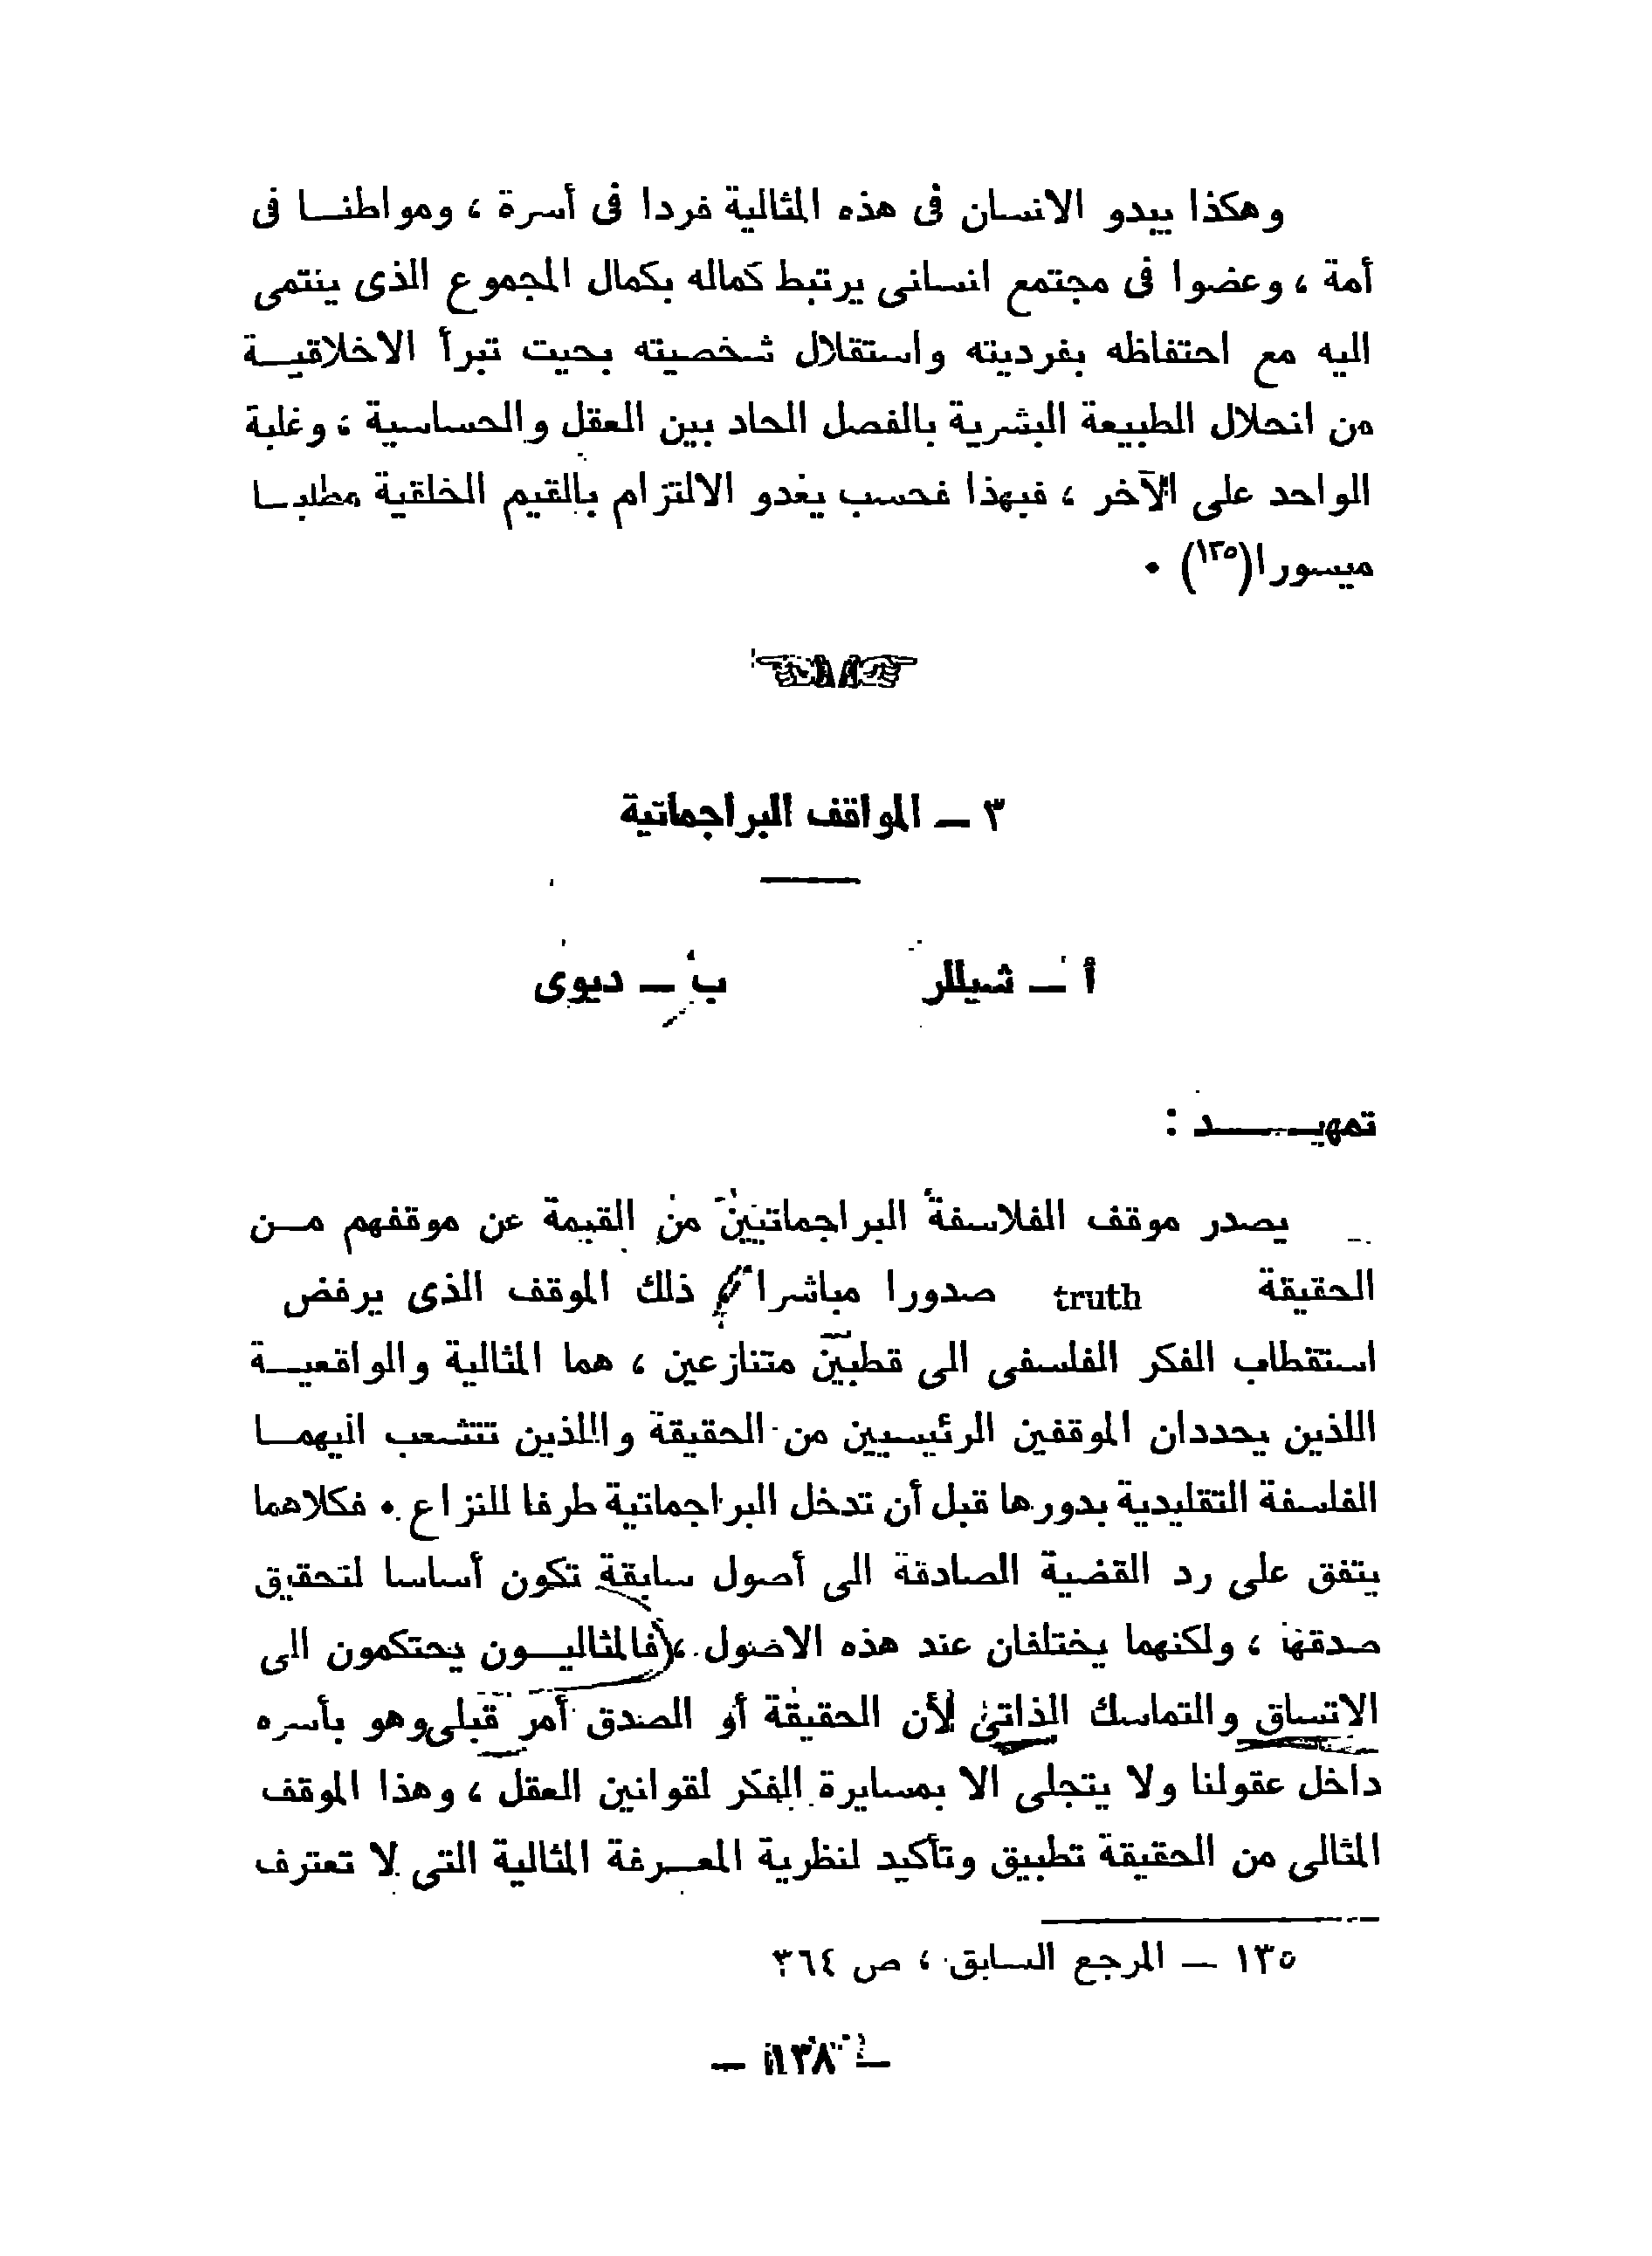 وهكذا يبدو الانسان فى هذه المثالية فردا فى أسرة ، ومواطنا فى
أمة ، وعضوا فى مجتمع انسانى يرتبط كماله بكمال المجموع الذى ينتمى
اليه مع احتفاظه بفرديته واستقلال شخصيته بحيث تبرأ الاخلاقية
من انحلال الطبيعة البشرية بالفصل الحاد بين العقل والحساسية ، وغلبة
الواحد على الآخر ، فبهذا فحسب يغدو الالتزام بالقيم الخلقية مطلبا
ميسورا(١٣٥) ٠
٣ ــ المواقف البراجماتية
أ ــ شيللر
ب ــ ديوى
تمهيد :
يصدر موقف الفلاسفة البراجماتيين من القيمة عن موقفهم من
الحقيقة truth صدورا مباشرا ذلك الموقف الذى يرفض
استقطاب الفكر الفلسفى الى قطبين متنازعين ، هما المثالية والواقعية
اللذين يحددان الموقفين الرئيسيين من الحقيقة واللذين تتشعب اليهما
الفلسفة التقليدية بدورها قبل أن تدخل البراجماتية طرفا للنزاع ٠ فكلاهما
يتفق على رد القضية الصادقة الى أصول سابقة تكون أساسا لتحقيق
صدقها ، ولكنهما يختلفان عند هذه الاصول ، فالمثاليون يحتكمون الى
الاتساق والتماسك الذاتى لأن الحقيقة أو الصدق أمر قبلى وهو بأسره
داخل عقولنا ولا يتجلى الا بمسايرة الفكر لقوانين العقل ، وهذا الموقف
المثالى من الحقيقة تطبيق وتأكيد لنظرية المعرفة المثالية التى لا تعترف
١٣٥ ــ المرجع السابق ، ص ٣٦٤
ــ ١٣٨ ــ